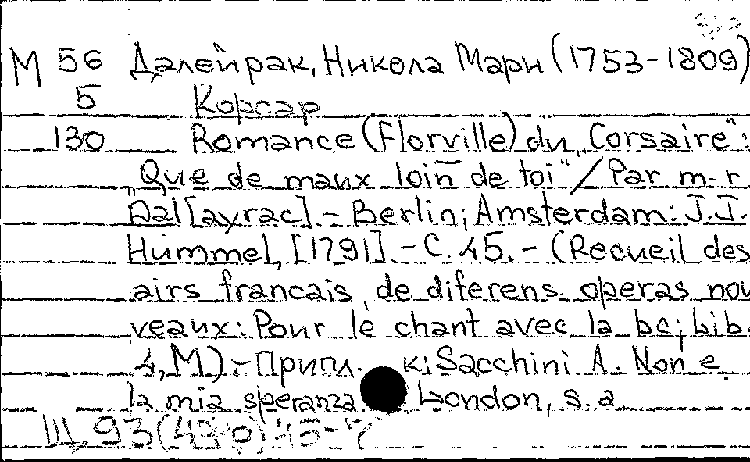 М 56 Далейрак, Никола Мари (1753-1809)
5 Корсар
130 Romance (Florville) du "Corsaire":
"Que de maux loin de toi" / Par m-r.
Dal[ayrac]. - Berlin; Amsterdam: J.J.
Hummel, [1791]. - С. 45. - (Recueil des
airs francais, de diferens operas nou
veaux: Pour le chant avec la bc; Lib.
4, M). - Припл. к: Sacchini A. Non e
la mia speranza London, s.a
Ц 93(430)45-7